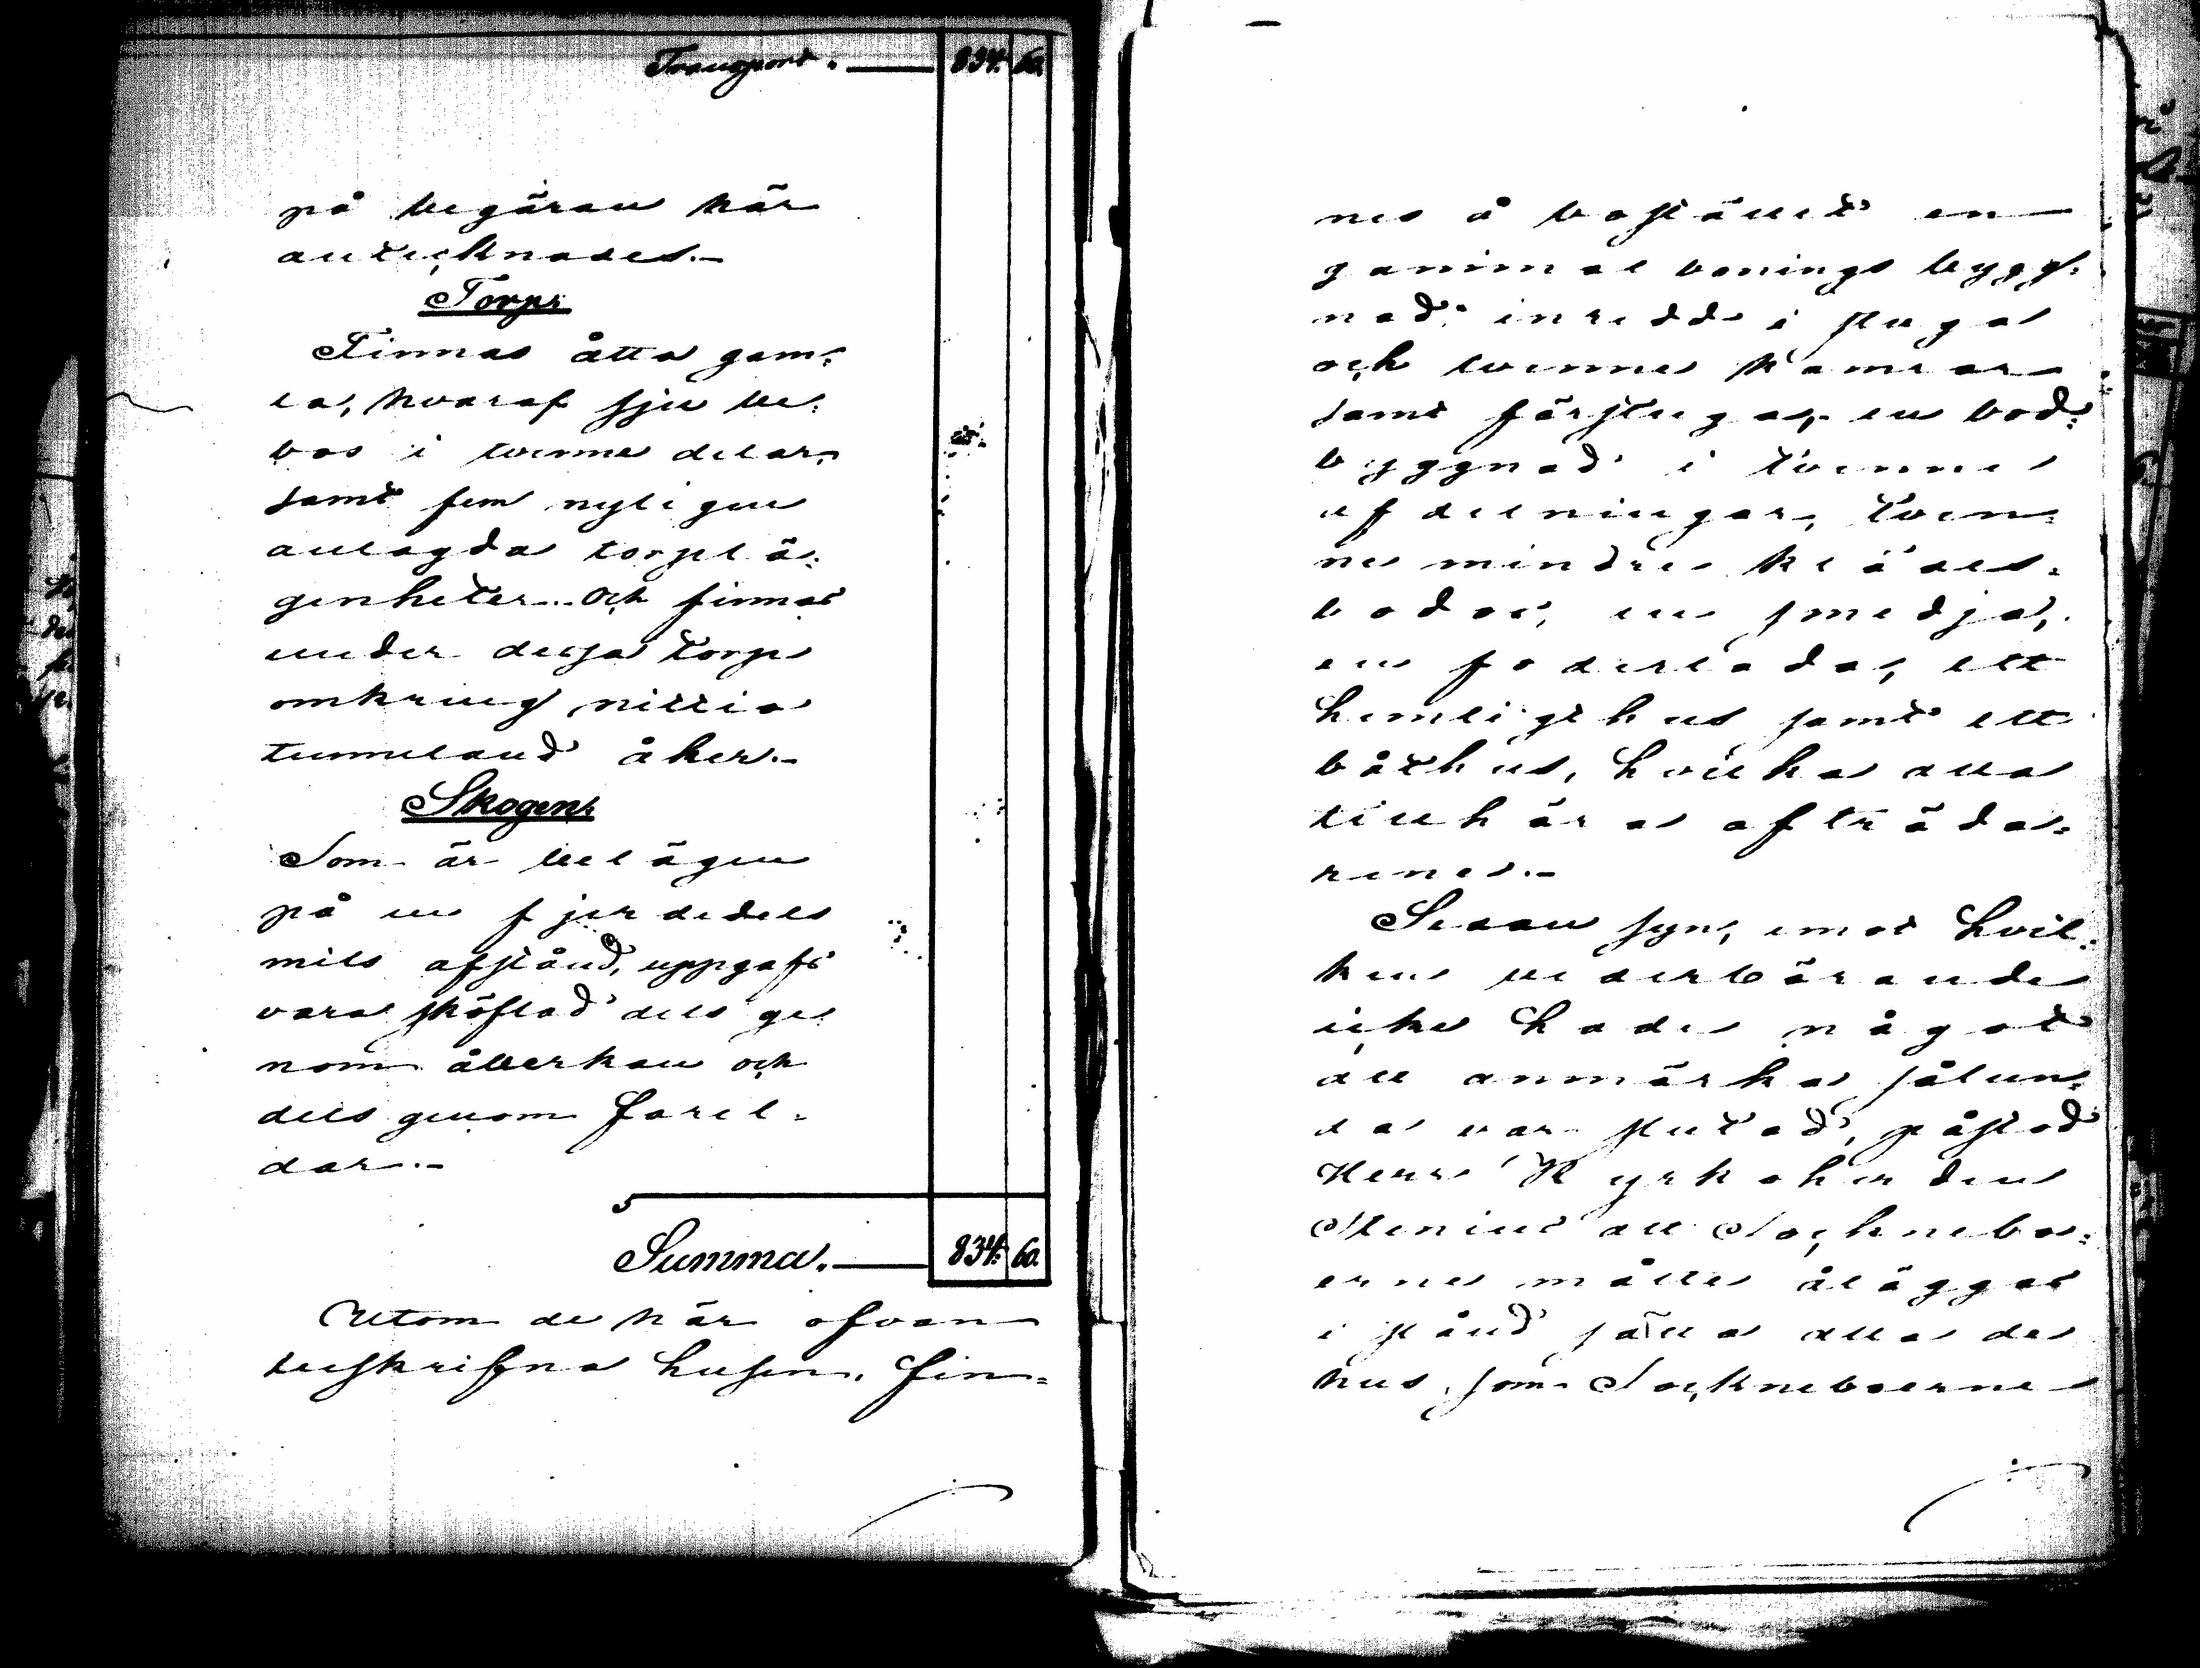 Transport. — 834. 60.
på begäran här
antecknades.-
Torp:
Finnas åtta gam:
la, hvaraf sju be:
bos i tvenne delar,
samt fem nyligen
anlagda torplä:
genheter. Och finnas
under dessa torp
omkring nittio
tunneland åker.-
Skogen:
Som är belägen
på en fjerdedels
mils afstånd, uppgafs
vara sköflad dels ge:
nom åverkan och
dels genom farel-
dar.-
Summa. — 834. 60.
Utom de här ofvan
beskrifna husen, fin-
nes å bostället en
gammal bonings bygg:
nad inredd i stuga
och tvenne kamrar
samt förstuga, en bod:
byggnad i tvenne
afdelningar, tven:
ne mindre klädes-
bodar, en smedja,
en foderlada, ett
hemligthus samt ett
båthus, hvilka alla
tillhöra afträda-
rene.-
Sedan syn, emot hvil:
ken vederbörande
icke hade något
att anmärka sålun:
da var slutad, påstod
Herr Kyrkoherden
Stenius att Socknebo:
erne måtte åläggas
i stånd sätta alla de
hus, som Sockneboerne